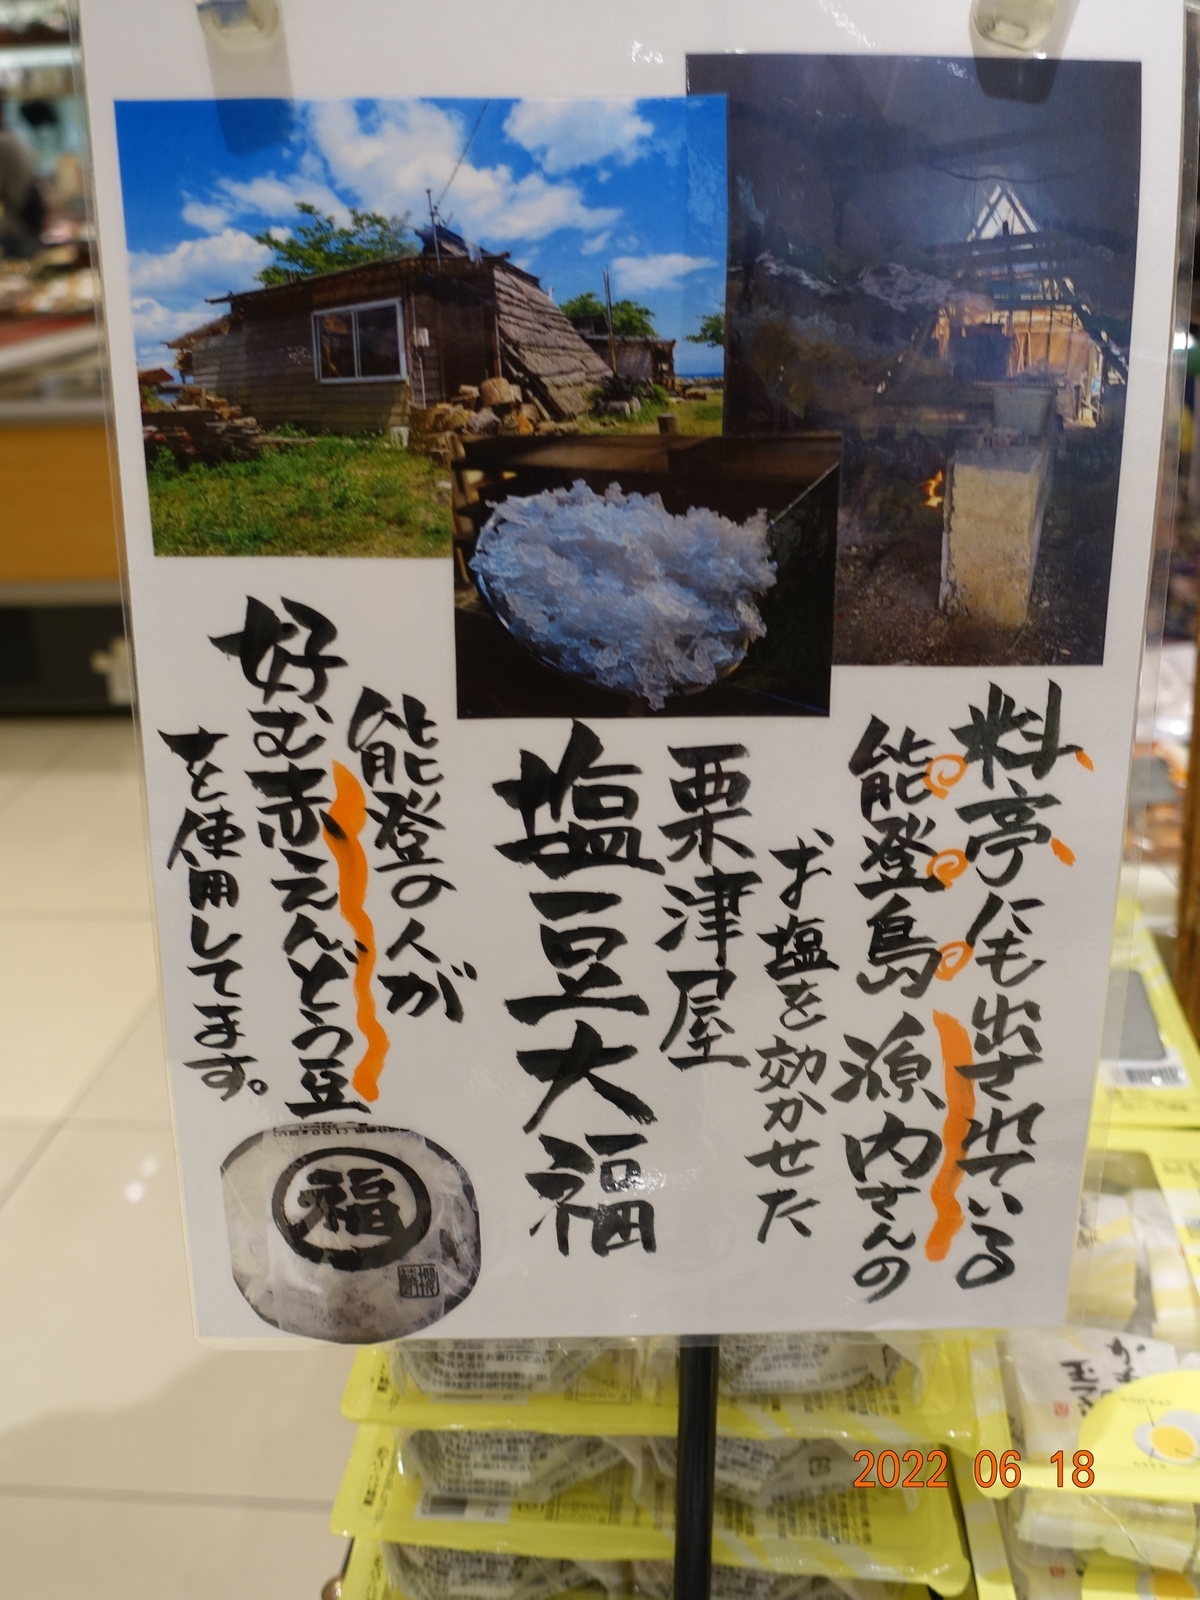 料亭にも出されている
能登島 源内さんの
お塩を効かせた
栗津屋
塩豆大福
能登の人が
好む赤えんどう豆
を使用してます。
福
2022 06 18